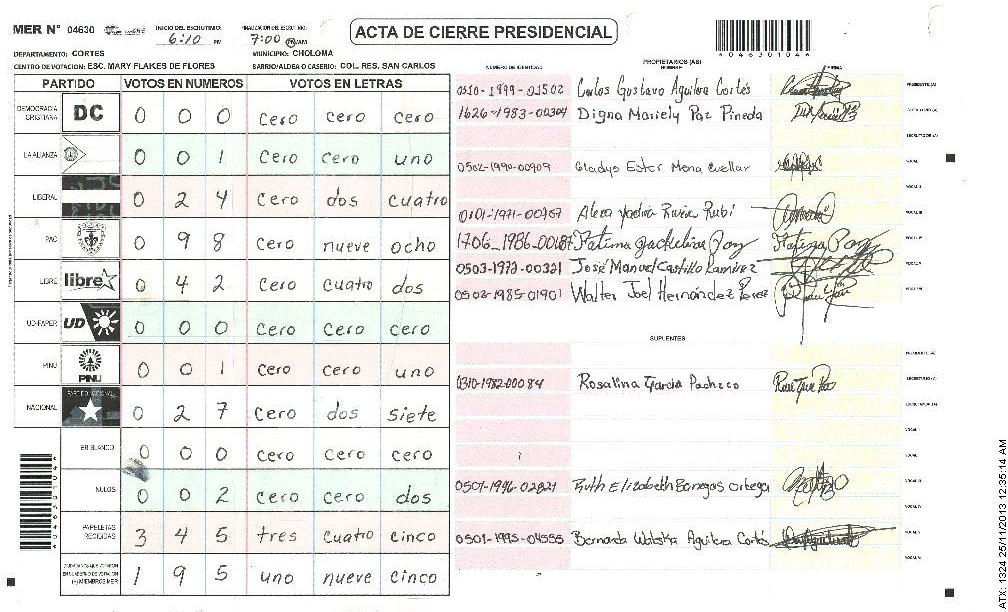 MER N° 04630
INICIO DEL ESCRUTINIO: 6:10 PM
FINALIZACION DEL ESCRUTINIO: 7:00 PM
ACTA DE CIERRE PRESIDENCIAL
*04630104*
DEPARTAMENTO: CORTES
MUNICIPIO: CHOLOMA
CENTRO DE VOTACION: ESC. MARY FLAKES DE FLORES
BARRIO/ALDEA O CASERIO: COL. RES. SAN CARLOS
PARTIDO VOTOS EN NUMEROS VOTOS EN LETRAS
DEMOCRACIA CRISTIANA DC 0 0 0 cero cero cero
LA ALIANZA 0 0 1 cero cero uno
LIBERAL 0 2 4 cero dos cuatro
PAC 0 9 8 cero nueve ocho
LIBRE libre 0 4 2 cero cuatro dos
UD-FAPER UD 0 0 0 cero cero cero
PINU PINU 0 0 1 cero cero uno
NACIONAL PARTIDO NACIONAL 0 2 7 cero dos siete
EN BLANCO 0 0 0 cero cero cero
NULOS 0 0 2 cero cero dos
PAPELETAS RECIBIDAS 3 4 5 tres cuatro cinco
CIUDADANOS QUE VOTARON EN CUADERNO DE VOTACION (+) MIEMBROS MER 1 9 5 uno nueve cinco
NUMERO DE IDENTIDAD
PROPIETARIOS (AS)
NOMBRE
FIRMA
0510-1999-01502 Carlos Gustavo Aguilera Cortés PRESIDENTE (A)
1626-1983-00304 Digna Mariely Paz Pineda SECRETARIO (A)
ESCRUTADOR (A)
0502-1990-00909 Gladys Ester Mena Cuellar VOCAL I
VOCAL II
0101-1971-00967 Rubi VOCAL III
1706-1986-00187 Fatima Jackeline Paz
0503-1972-00321 José Manuel Castillo Ramirez VOCAL V
0502-1985-01901 Walter Joel Hernández Perez VOCAL VI
SUPLENTES
PRESIDENTE (A)
0310-1982-00084 Rosalina Garcia Pacheco SECRETARIO (A)
ESCRUTADOR (A)
VOCAL I
VOCAL II
0501-1996-02821 Ruth Elizabeth Banegas Ortega VOCAL III
VOCAL IV
0501-1995-04555 Bernarda Waleska Aguilera Cortés VOCAL V
VOCAL VI
ATX: 1324 25/11/2013 12:35:14 AM